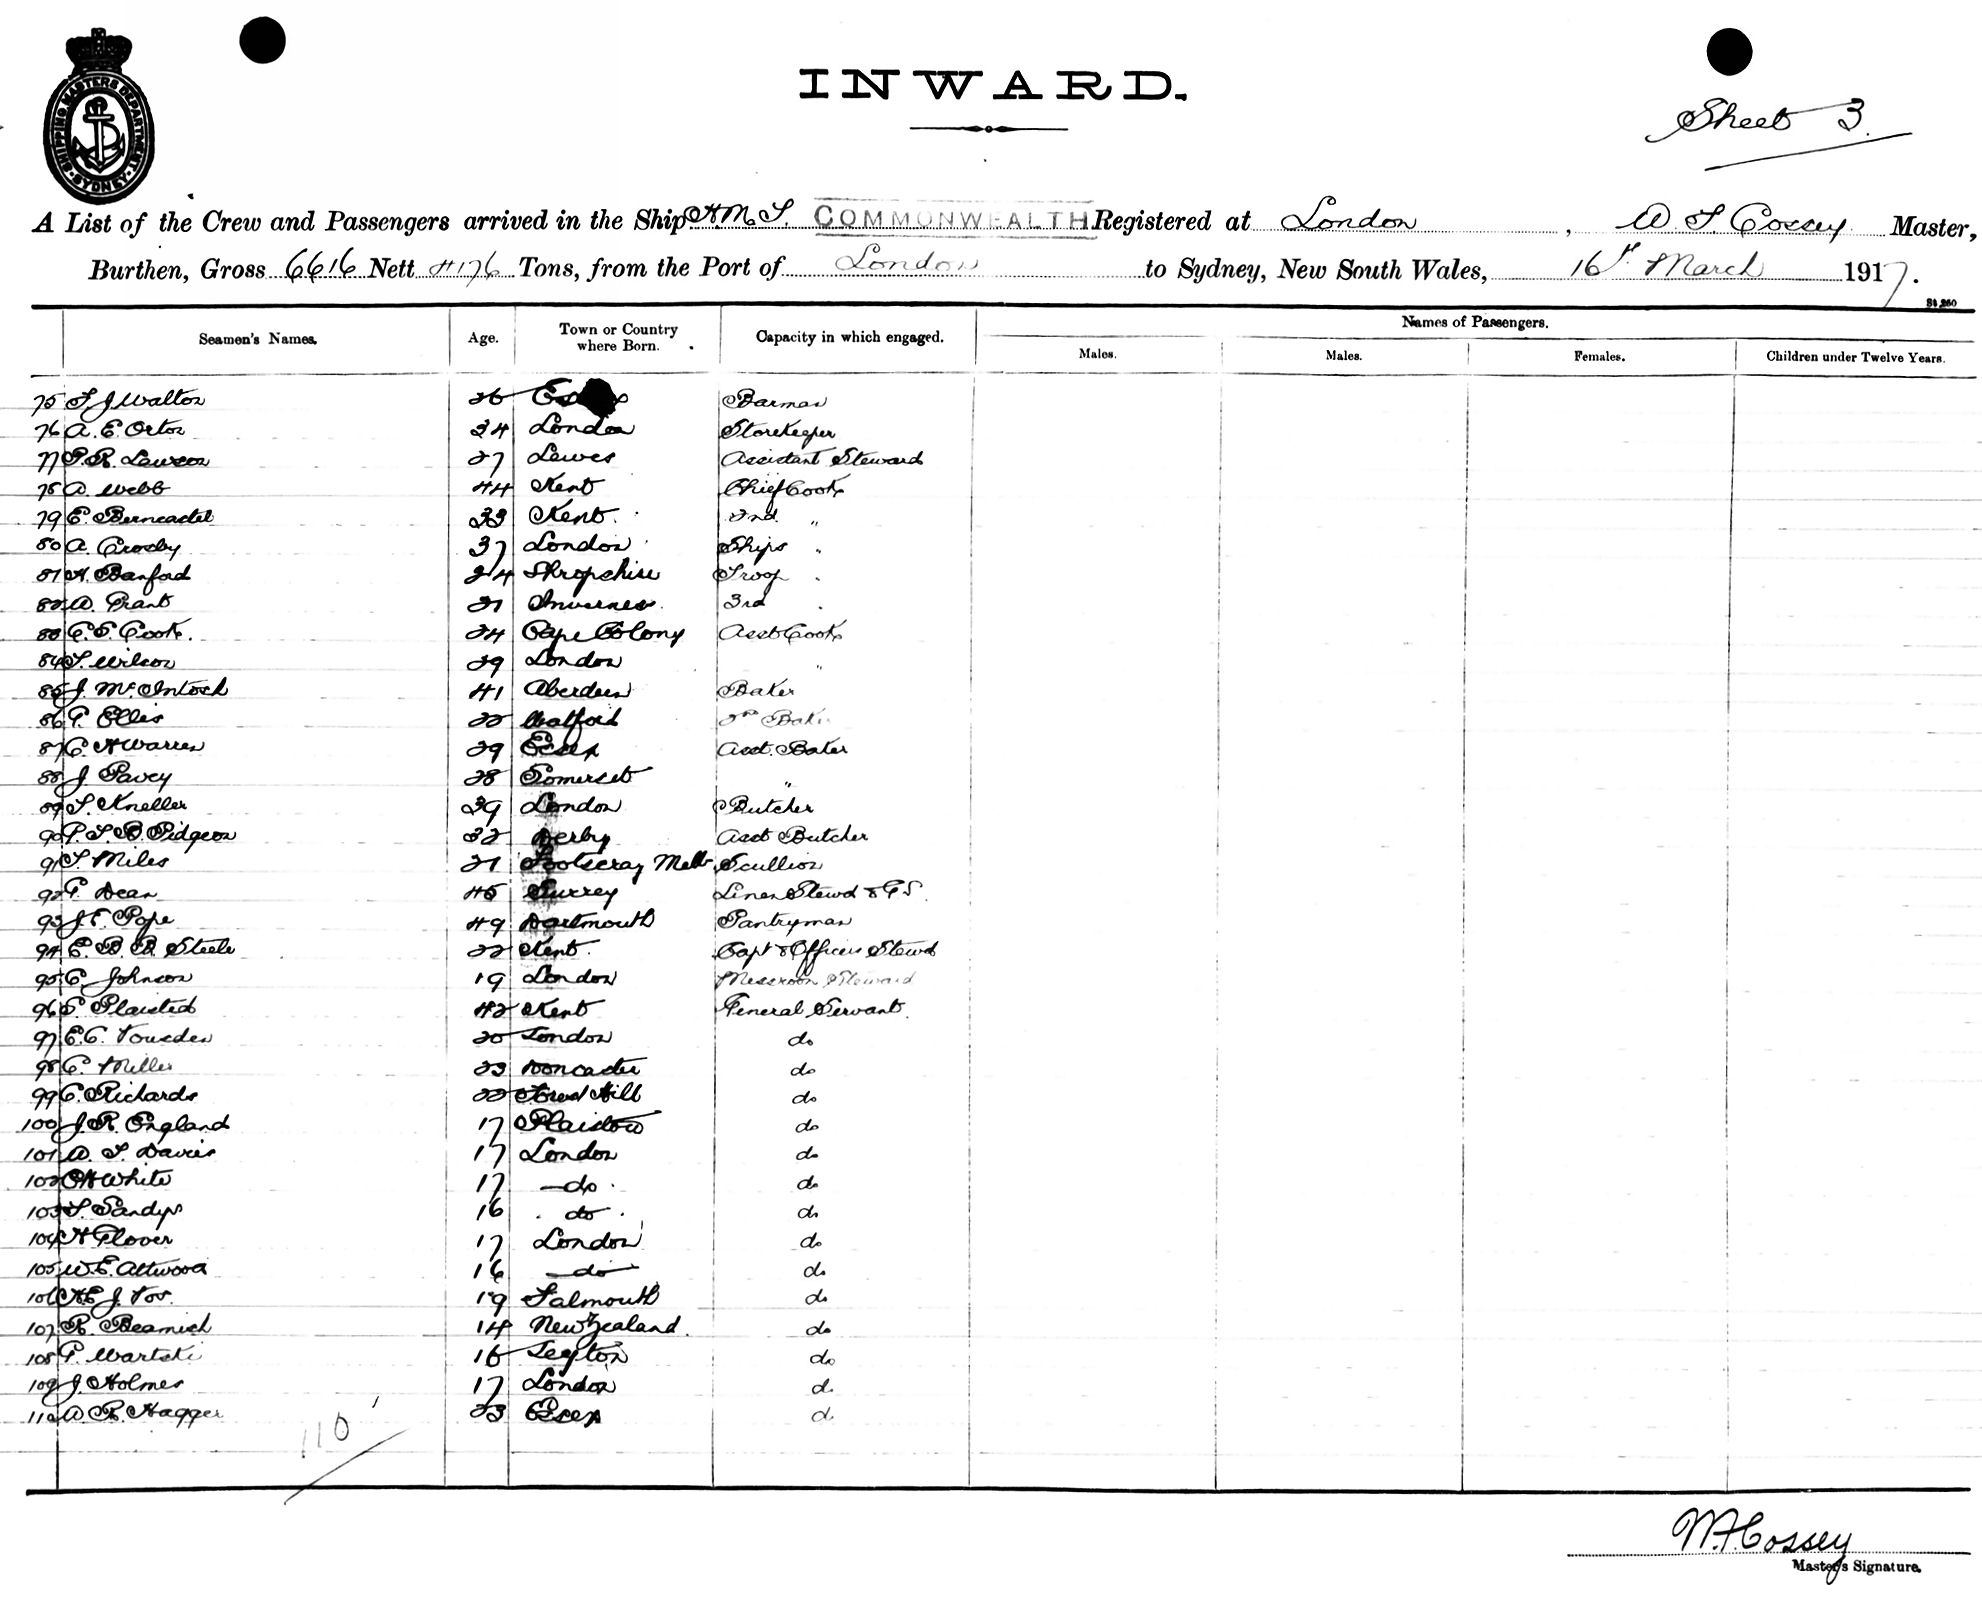 INWARD.
Sheet 3.
SHIPPING MASTERS DEPARTMENT
SYDNEY
A List of the Crew and Passengers arrived in the Ship H.M.S. COMMONWEALTH Registered at London, W F Cossey Master,
Burthen, Gross 6616 Nett 4176 Tons, from the Port of London to Sydney, New South Wales, 16th March 1917.
Seamen's Names. Age. Town or Country where Born. Capacity in which engaged. Names of Passengers.
Males. Males. Females. Children under Twelve Years.
75 F. J Walton 26 Barman
76 A. E. Orton 34 London Storekeeper
77 P. R. Lawson 27 Lewes Assistant Steward
78 A. Webb 44 Kent Chief Cook
79 E. Berncastel 33 Kent. 2nd "
80 A. Crosby 37 London Ships "
81 H. Banford 24 Shropshire Troop "
82 A. Grant 21 Inverness. 3rd "
83 C. S. Cook. 24 Cape Colony Asst Cook
84 F. Wilson 29 London "
85 J. McIntosh 41 Aberdeen Baker
86 G. Ellis 22 Watford 2nd Baker
87 C. H Warren 29 Essex Asst. Baker
88 J. Pavey 28 Somerset "
89 F. Kneller 39 London Butcher
90 P. F. B. Pidgeon 32 Derby Asst Butcher
91 F. Miles 21 Footscray Melb Scullion
92 G. Dean 45 Surrey Linen Stewd & G S.
93 J. E. Pope 49 Dartmouth Pantryman
94 E. B. B. Steele 22 Kent. Capt & Officers Stewd
95 C. Johnson 19 London Messroom Steward
96 E. Plaisted 42 Kent General Servant.
97 E. C. Towsden 20 London do
98 C. Miller 23 Doncaster do
99 C. Richards 22 Forest Hill do
100 J. R. England 17 Plaistow do
101 A. F. Davies 17 London do
102 C H White 17 do do
103 F. Sandys 16 do do
104 H Glover 17 London do
105 W. E. Attwood 16 do do
106 H E J. Fox. 19 Falmouth do
107 R. Beamish 14 New Zealand. do
108 G. Wartski 16 Leyton do
109 J. Holmes 17 London d.
110 A. R. Hagger 23 Essex d
110
W. F. Cossey
Master's Signature.